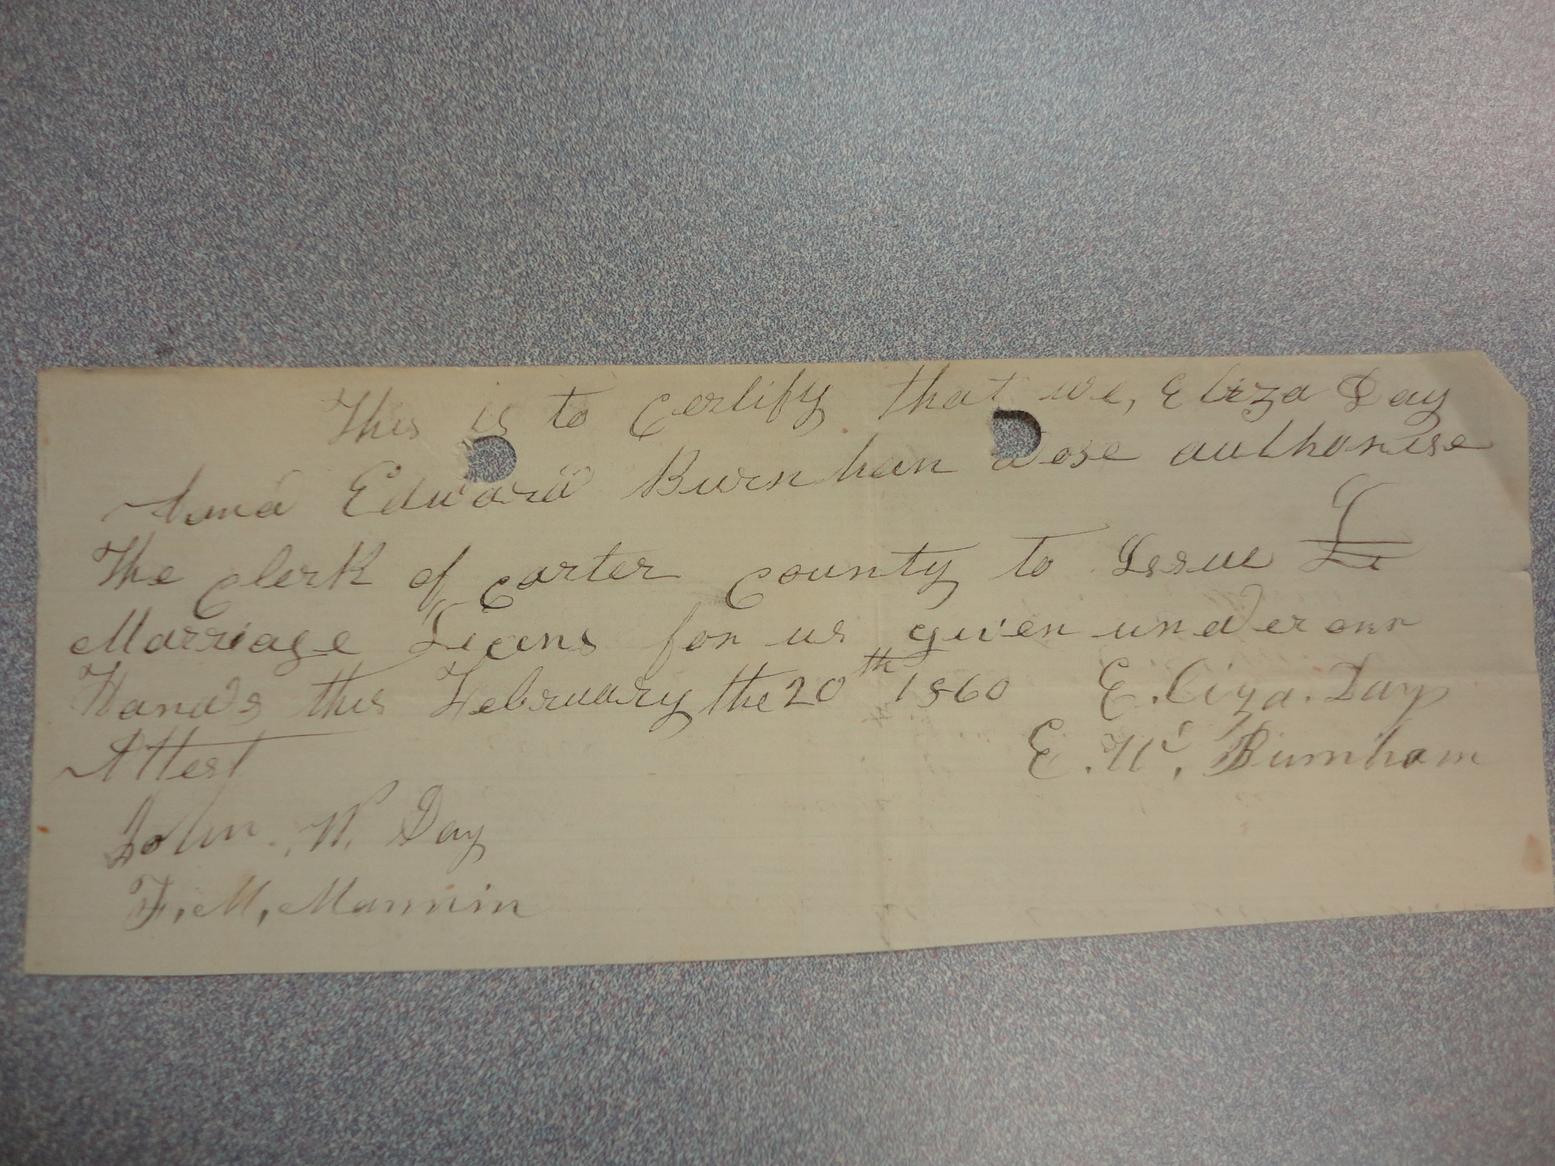 This is to certify that we, Eliza Day
And Edward Burnham dose authorise
The clerk of carter county to Issue
Marriage Licens for us given under our
Hands this February the 20th 1860 E. Liza. Day
Attest E. W. Burnham
John. W. Day
F. M, Mannin